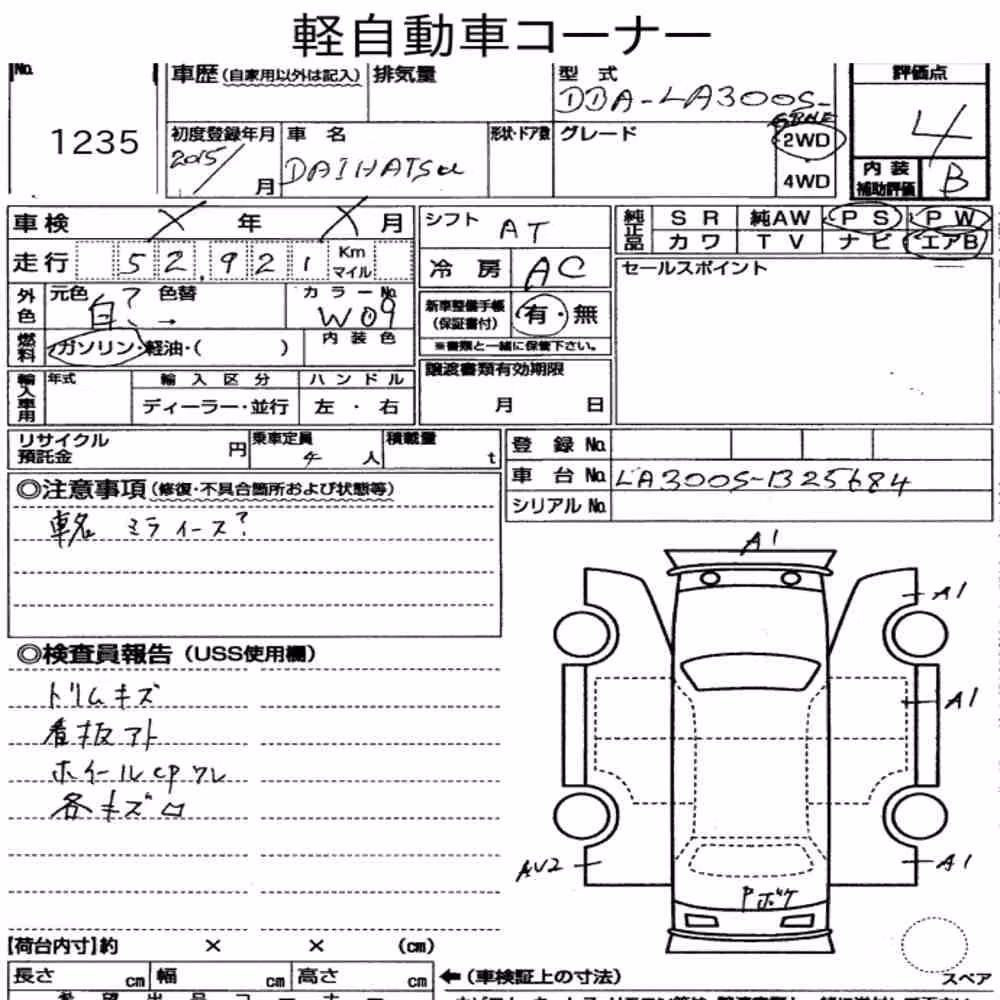 軽自動車コーナー
No. 車歴 (自家用以外は記入) 排気量 型 式 評価点
DBA-LA300S-
GBNE
1235 初度登録年月 車 名 形状・ドア数 グレード 2WD 4
2015/ 月 DAIHATSU 4WD 内装補助評価 B
車検 X 年 X 月 シフト AT 純正品 SR 純AW PS PW
走行 52,921 Km マイル 冷房 AC カワ TV ナビ エアB
セールスポイント
外色 元色 白? 色替 → カラーNo. W09 新車整備手帳 (保証書付) 有・無
燃料 ガソリン・軽油・( ) 内装色 ※書類と一緒に保管下さい。
輸入車用 年式 輸入区分 ハンドル 譲渡書類有効期限
ディーラー・並行 左・右 月 日
リサイクル預託金 円 乗車定員 4 人 積載量 t 登録No.
車台No. LA300S-1325684
◎注意事項 (修復・不具合箇所および状態等) シリアルNo.
車名 ミライース?
A1
A1
◎検査員報告 (USS使用欄)
トリムキズ
A1
看板アト
ホイールCPワレ
各キズロ
AU2 A1
Pボケ
【荷台内寸】約 × × (cm)
長さ cm 幅 cm 高さ cm ←(車検証上の寸法) スペア
希望出品コーナー